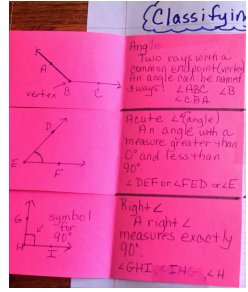 Classifyin
A
B
C
vertex
Angle
Two rays with a
common endpoint (vertex)
An angle can be named
3 ways: ∠ABC ∠B
∠CBA
D
E
F
Acute ∠ (angle)
An angle with a
measure greater than
0° and less than
90°
∠DEF or ∠FED or ∠E
G
H
I
symbol
for
90°
Right ∠
A right ∠
measures exactly
90°
∠GHI, ∠IHG, ∠H